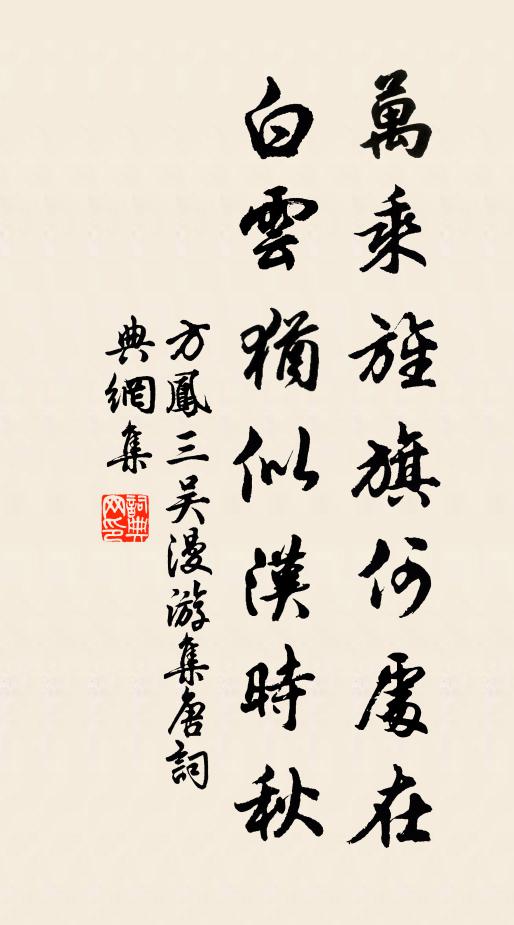 萬乘旌旗何處在
白雲猶似漢時秋
方鳳三吴漫游集唐詞
典網集
詞典網印